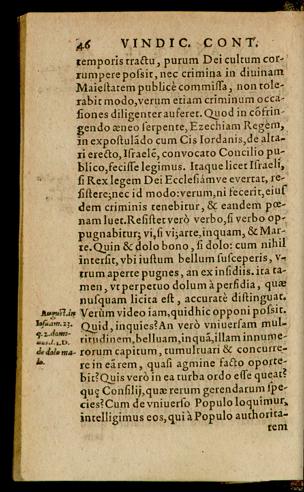 46 VINDIC. CONT.
temporis tractu, purum Dei cultum cor-
rumpere possit, nec crimina in diuinam
Maiestatem publicè commissa, non tole-
rabit modo, verum etiam criminum occa-
siones diligenter auferet. Quod in cōfrin-
gendo æneo serpente, Ezechiam Regem,
in expostulādo cum Cis Iordanis, de alta-
ri erecto, Israelē, convocato Concilio pu-
blico, fecisse legimus. Itaque licet Israeli,
si Rex legem Dei Ecclesiámve evertat, re-
sistere; nec id modo: verum, ni fecerit, eius
dem criminis tenebitur, & eandem pœ-
nam luet. Resistet verò verbo, si verbo op-
pugnabitur; vi, si vi; arte, inquam, & Mar-
te. Quin & dolo bono, si dolo: cum nihil
intersit, vbi iustum bellum susceperis, v-
trum aperte pugnes, an ex insidiis. ita ta-
men, vt perpetuo dolum à perfidia, quæ
nusquam licita est, accuratè distinguat.
August. in
Iosuam. 23.
q. 2. domi-
nus. l. 1. D.
de dolo ma-
lo.
Verùm video iam, quid hic opponi possit.
Quid, inquies? An verò vniuersam mul-
titudinem, belluam, inquā, illam innume-
rorum capitum, tumultuari & concurre-
re in eā rem, quasi agmine facto oporte-
bit? Quis verò in ea turba ordo esse queat?
quę Consilij, quæ rerum gerendarum spe-
cies? Cum de vniuerso Populo loquimur,
intelligimus eos, qui à Populo authorita-
tem